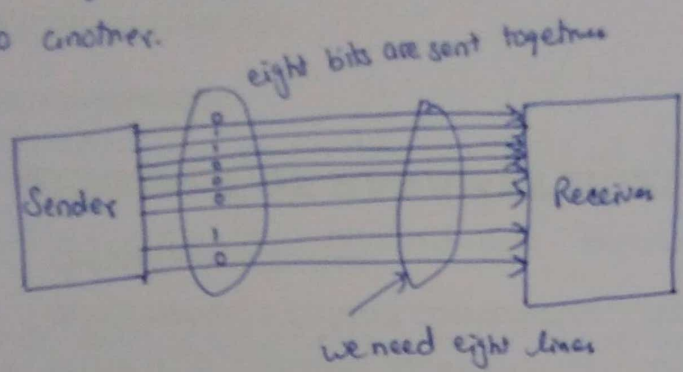 another.
eight bits are sent together
0
1
1
0
0
0
1
0
Sender
Receiver
we need eight lines